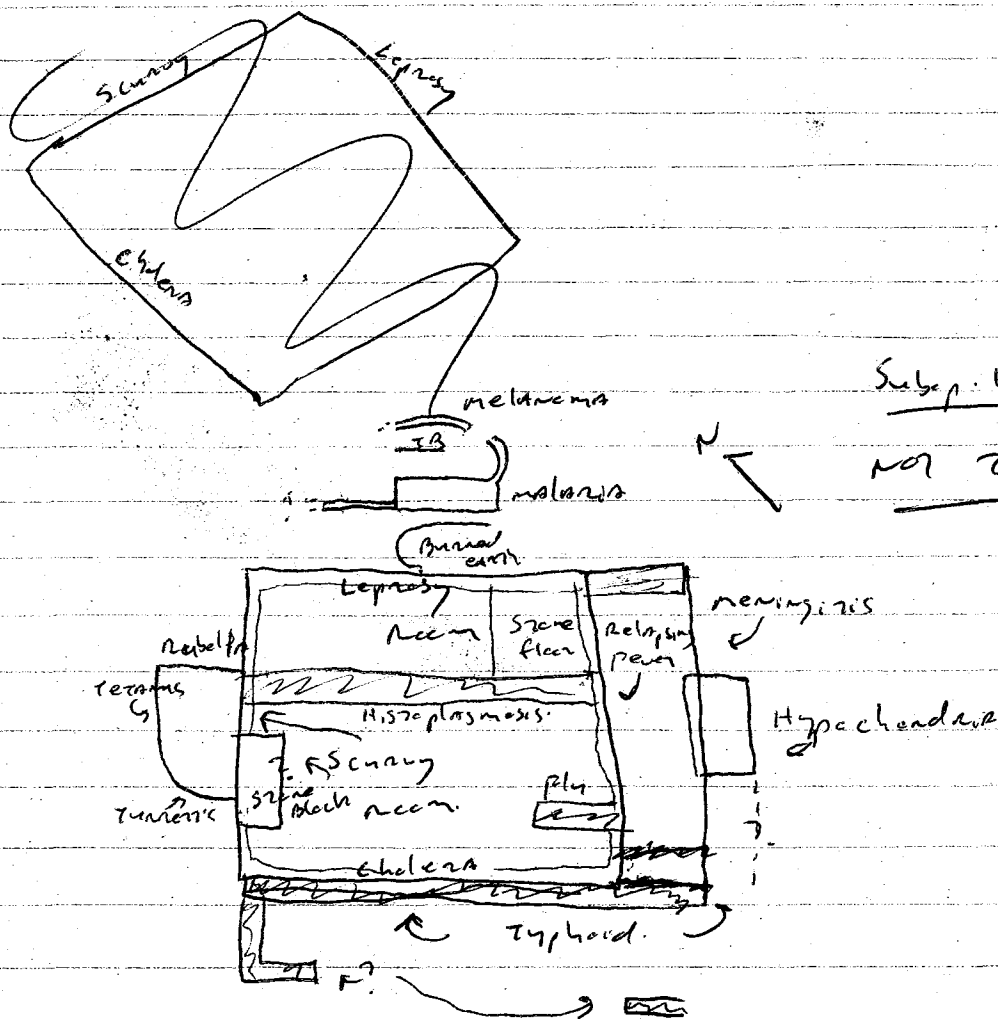 Scurvy
Leprosy
Cholera
Melanoma
TB
N
NOT
Malaria
Burned
earth
Leprosy
Room
Stone
floor
Relapsing
fever
Meningitis
Rubella
Tetanus
Histoplasmosis.
Hypochondria
?
Scurvy
Stone
Block
Room.
Flu
?
Cholera
Typhoid.
?